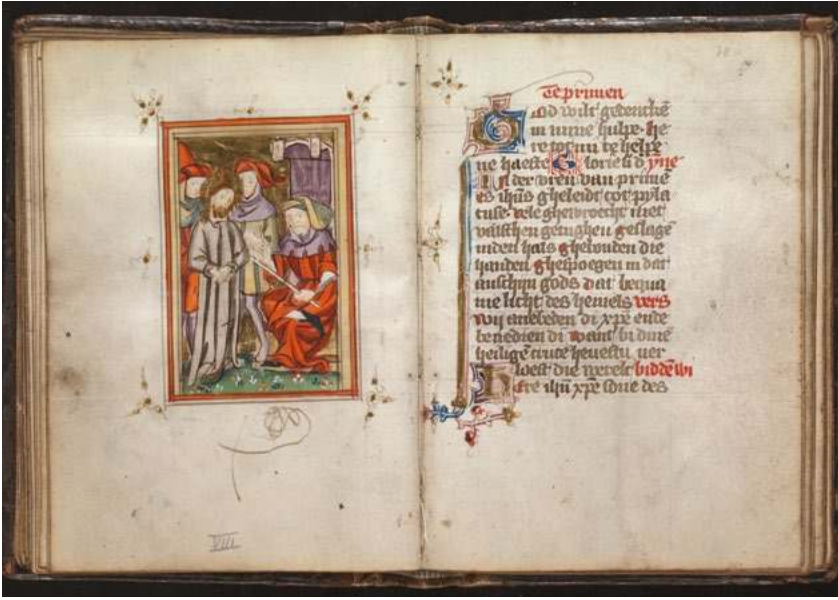 Te priemen
God wilt gedencke̅
in mine hulpe. he
re tot mi te helpe
ne haeste Glorie si d yne
In der vren van prime
es ih̅us gheleidt tot pyla
tuse. vele ghewrocht met
valschen getughen geslage̅
inden hals ghebonden die
handen ghespoegen in dat
anschijn gods dat bequa
me licht des hemels vers
Wij anebeden di xp̅e ende
benedien di want bi dine̅
heilige̅ cruce hevestu ver
loest die werelt bidde̅ wi
Here ih̅u xp̅e sone des
VIII